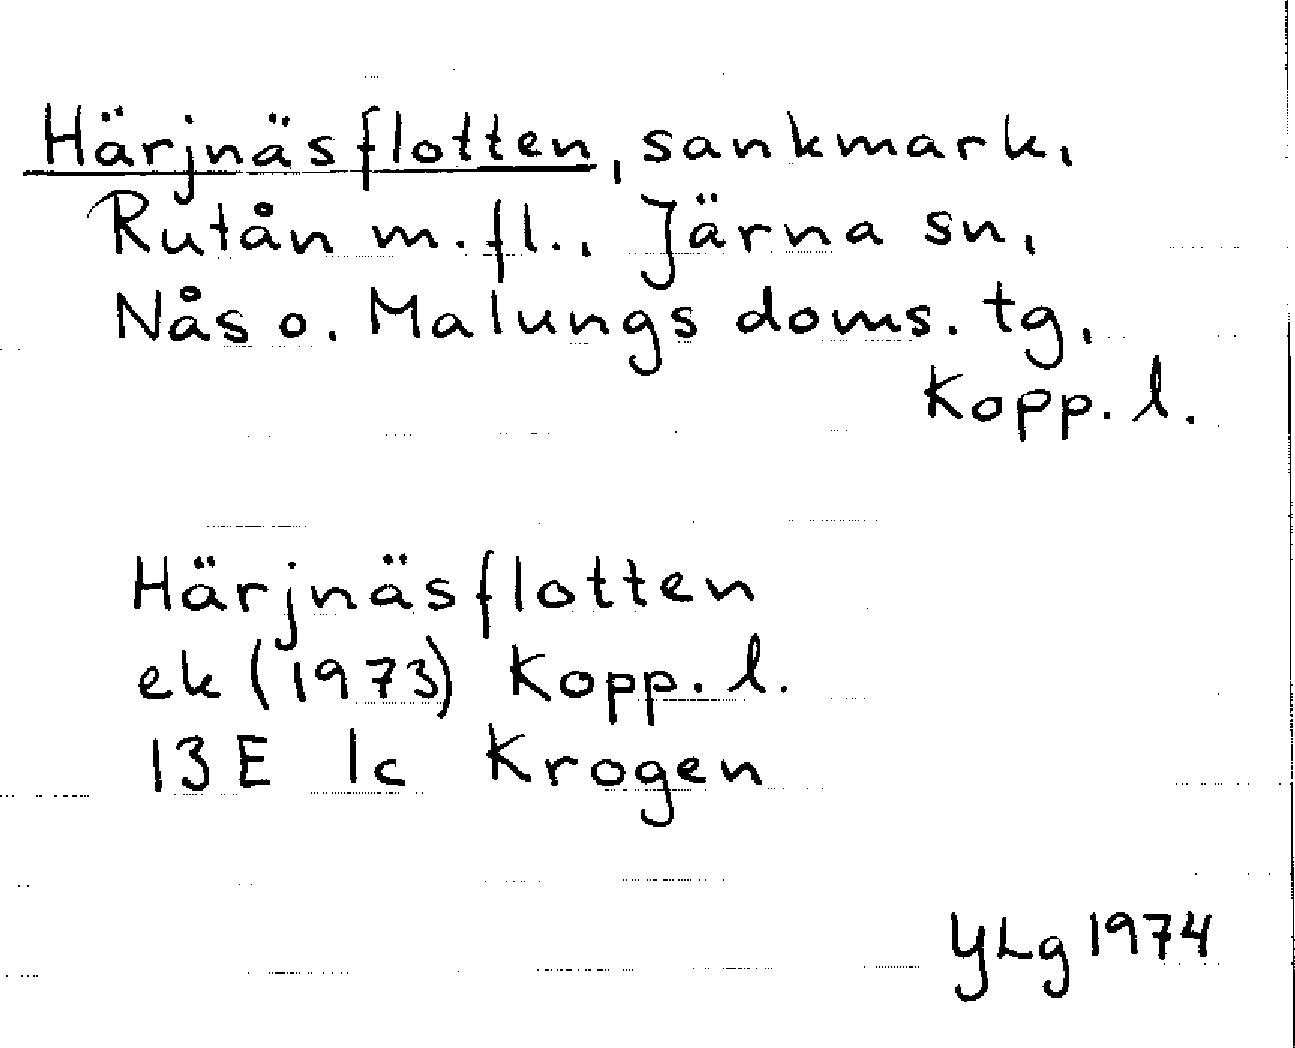 Härjnäsflotten, sankmark,
Rutån m.fl., Järna sn,
Nås o. Malungs doms. tg,
Kopp. l.
Härjnäsflotten
ek (1973) Kopp. l.
13 E 1c Krogen
YLg 1974